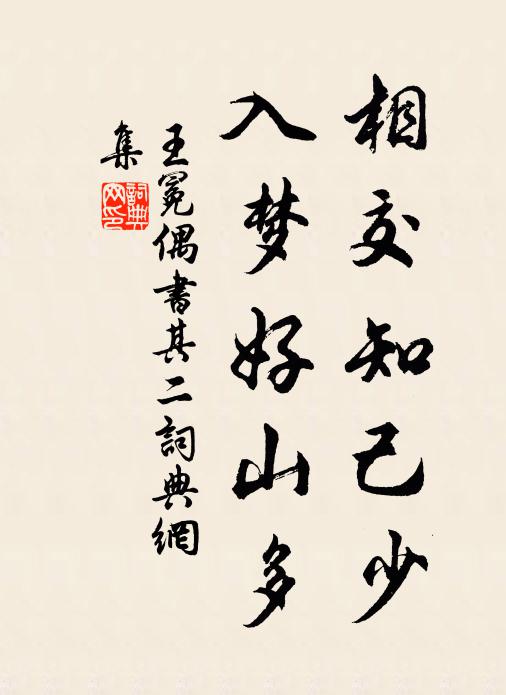 相交知己少
入梦好山多
王冕偶書其二詞典網
集
詞典網印